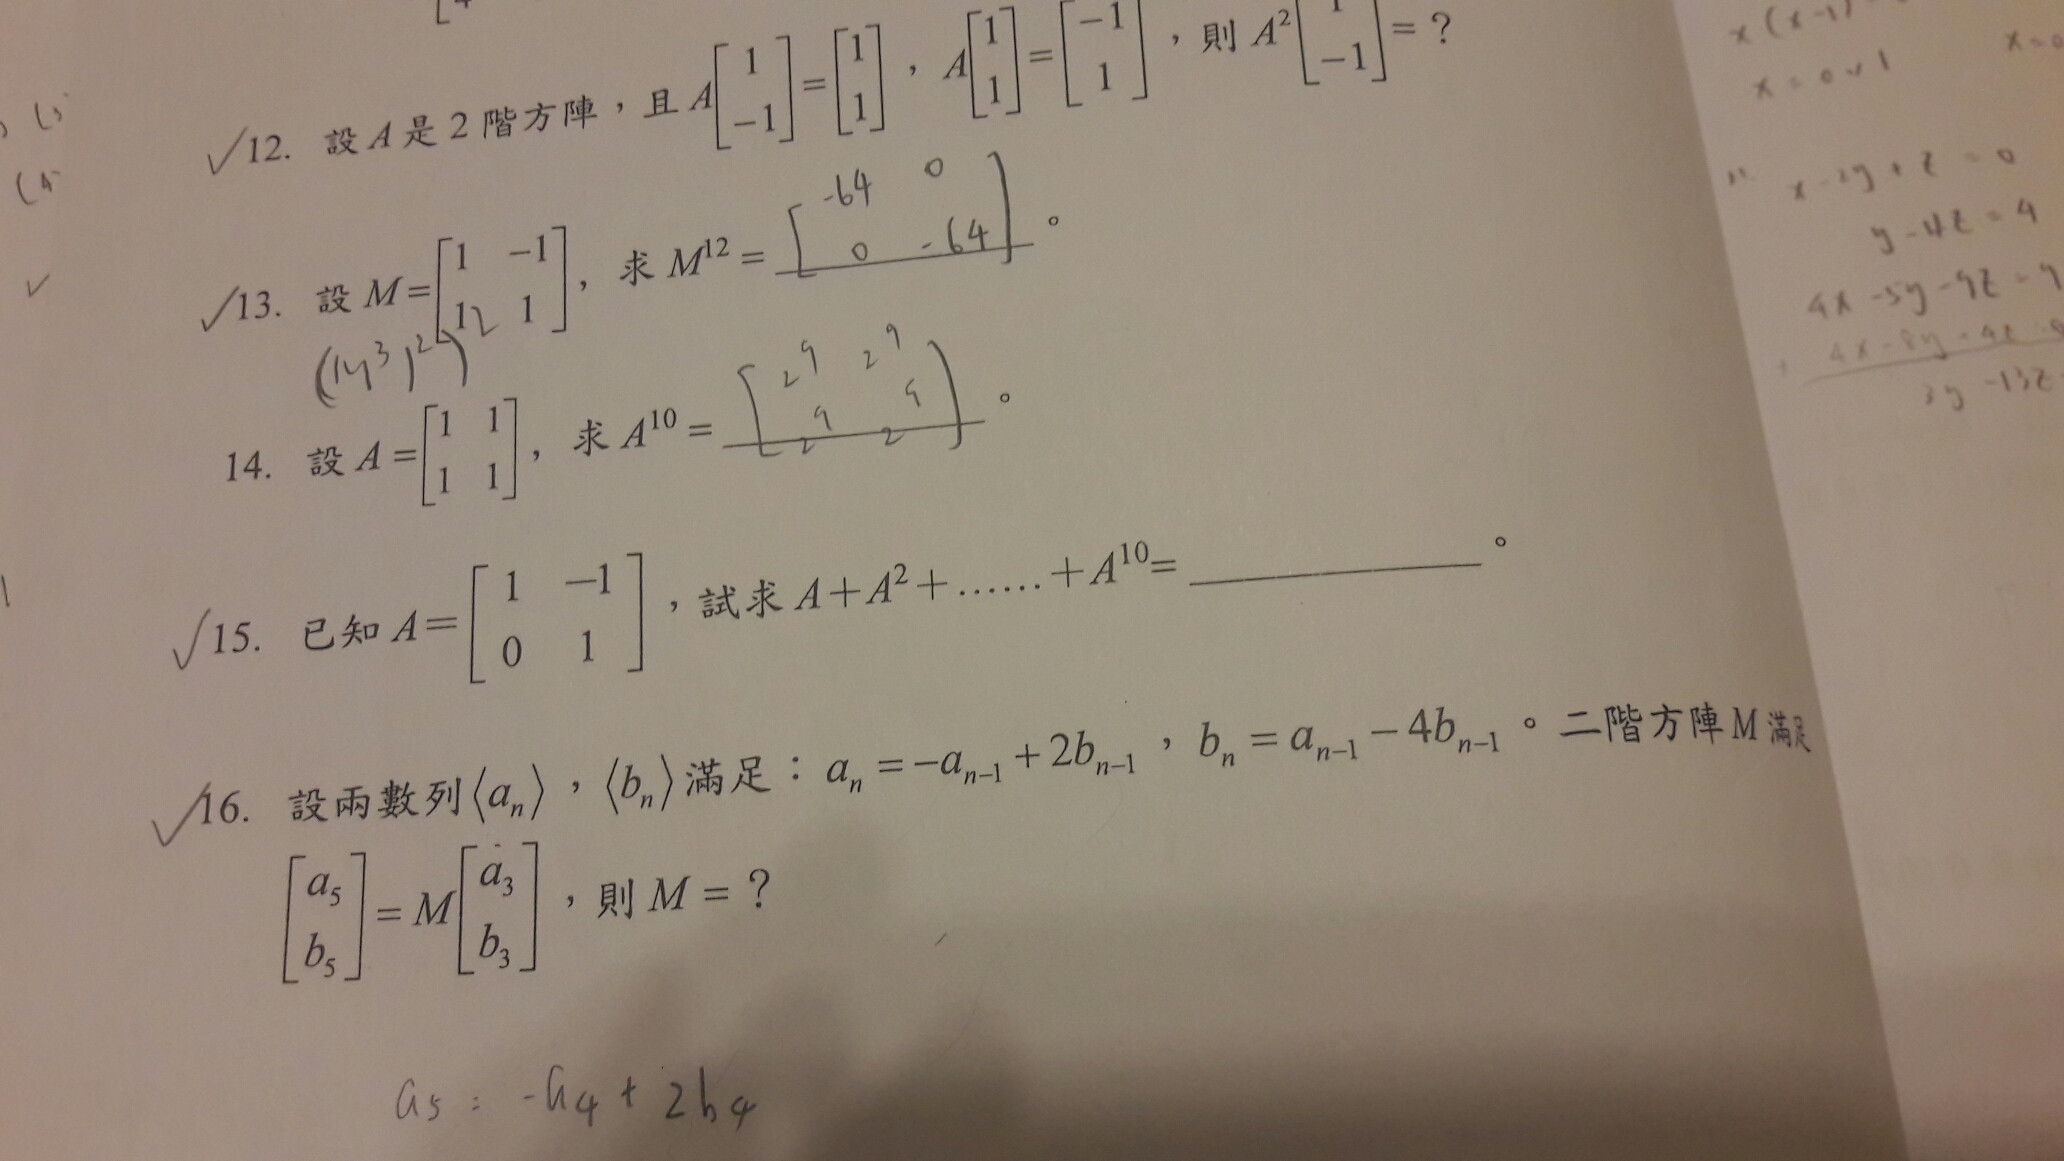 12. 設 A 是 2 階方陣，且 A[1 -1] = [1 1]，A[1 1] = [-1 1]，則 A²[1 -1] = ?
13. 設 M = [1 -1 1 1]，求 M¹² = [-64 0 0 -64]。
14. 設 A = [1 1 1 1]，求 A¹⁰ = [2⁹ 2⁹ 2⁹ 2⁹]。
15. 已知 A = [1 -1 0 1]，試求 A+A²+……+A¹⁰= ________。
16. 設兩數列⟨aₙ⟩，⟨bₙ⟩滿足：aₙ = -aₙ₋₁ + 2bₙ₋₁，bₙ = aₙ₋₁ - 4bₙ₋₁。二階方陣 M 滿足
[a₅ b₅] = M[a₃ b₃]，則 M = ?
a₅ = -a₄ + 2b₄
x = 0 v 1
x - 2y + z = 0
y - 4z = 4